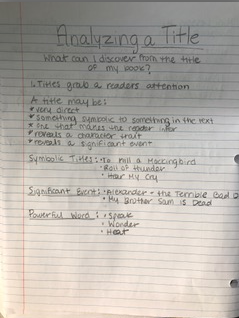 Analyzing a Title
What can I discover from the title
of my book?
Titles grab a readers attention
A title may be:
* very direct
* something symbolic to something in the text
* one that makes the reader infer
* reveals a character trait
* reveals a significant event
Symbolic Titles: • To Kill a Mockingbird
• Roll of Thunder
• Hear My Cry
Significant Event: • Alexander - the Terrible Bad
• My Brother Sam is Dead
Powerful Word: • Speak
• Wonder
• Heat